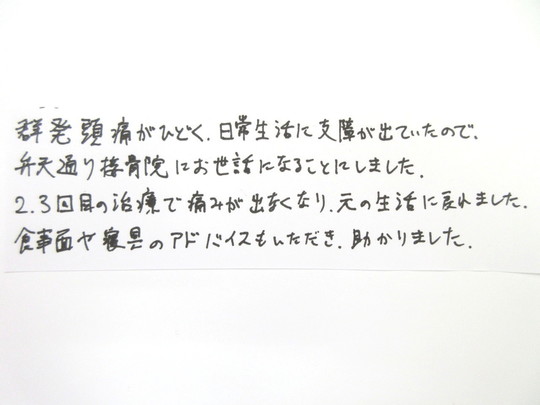 群発頭痛がひどく、日常生活に支障が出ていたので、
弁天通り接骨院にお世話になることにしました。
2.3回目の治療で痛みが出なくなり、元の生活に戻れました。
食事面や寝具のアドバイスもいただき、助かりました。